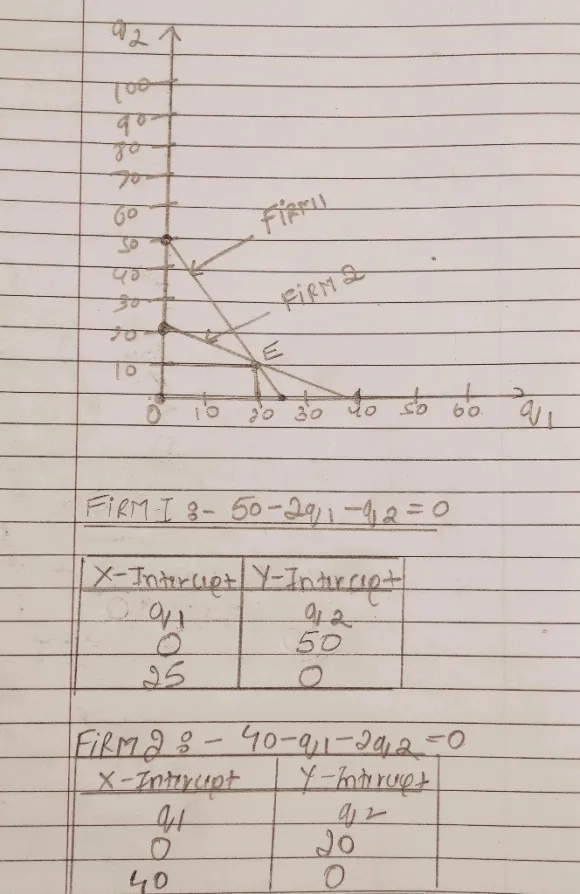 q2
100
90
80
70
60
FIRM 1
50
40
FIRM 2
30
20
E
10
0 10 20 30 40 50 60 q1
FIRM-I :- 50-2q1-q2=0
X-Intercept Y-Intercept
q1 q2
0 50
25 0
FIRM 2 :- 40-q1-2q2=0
X-Intercept Y-Intercept
q1 q2
0 20
40 0